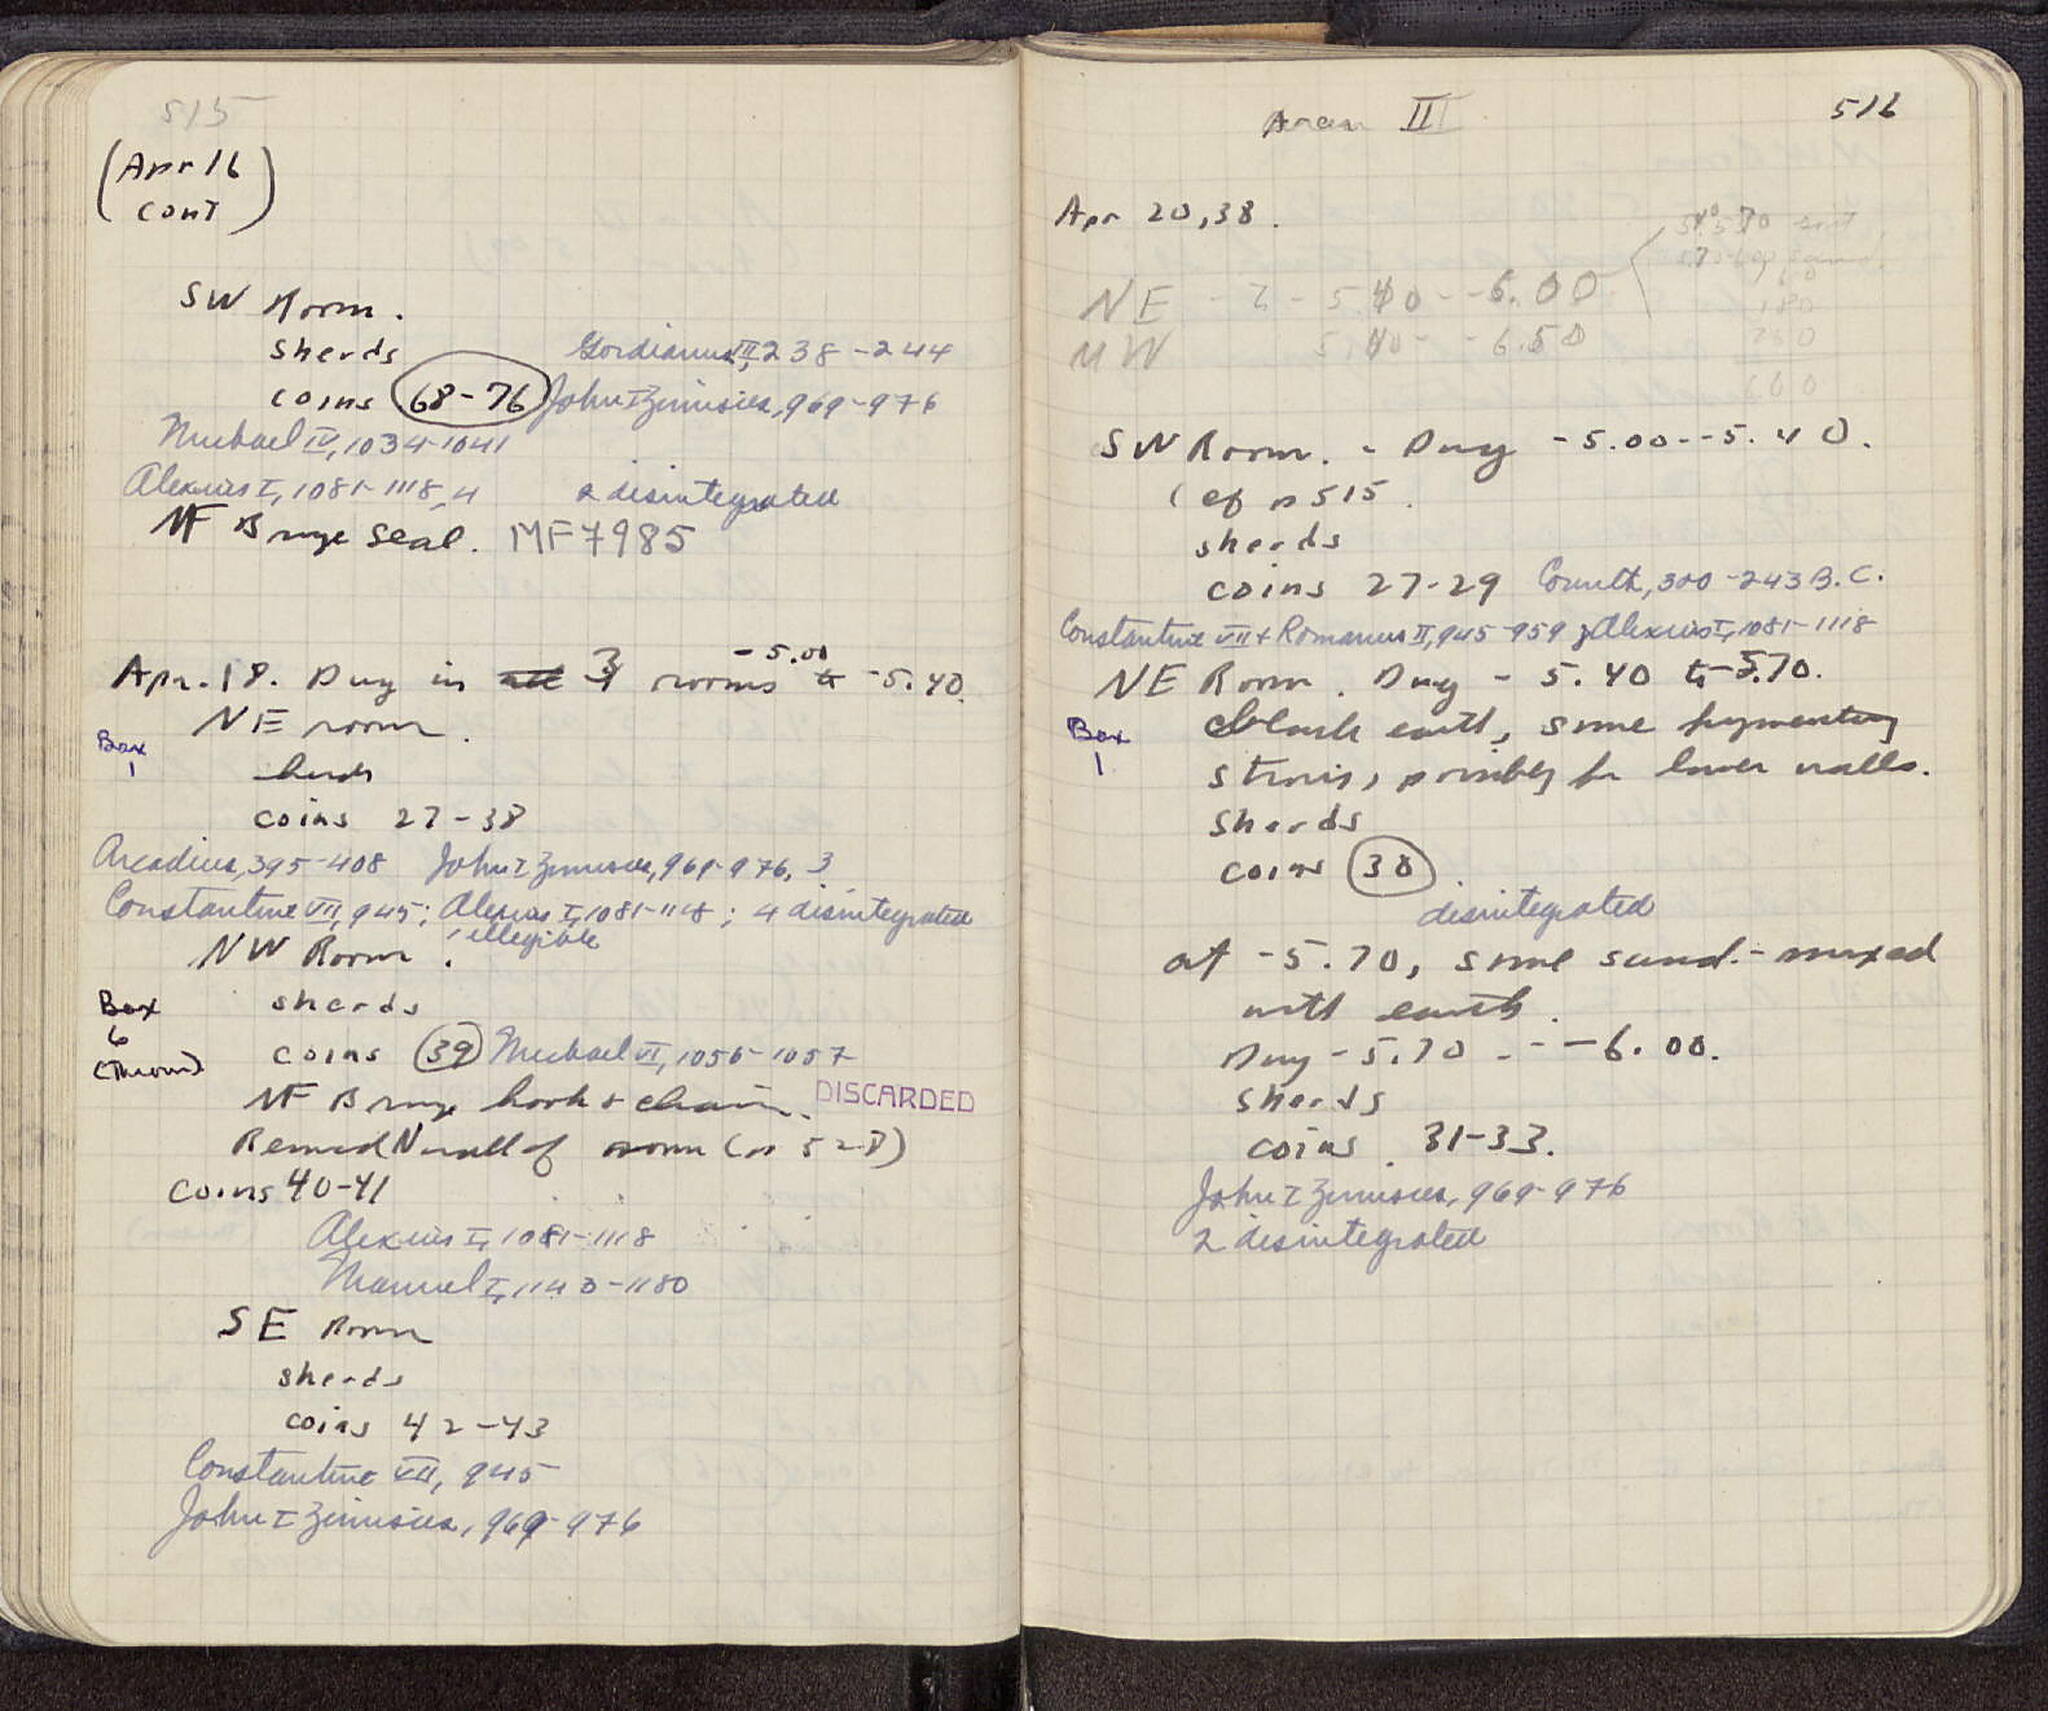 515
(Apr 16
cont)
SW Room.
sherds Gordianus III, 238-244
coins 68-76 John I Zimisces, 969-976
Michael IV, 1034-1041
Alexius I, 1081-1118, 4 2 disintegrated
MF Bronze Seal. MF7985
Apr. 18. Dug in all 3 rooms -5.00 to -5.40
NE room.
Box
1
sherds
coins 27-38
Arcadius, 395-408 John I Zimisces, 969-976, 3
Constantine VII, 945; Alexius I, 1081-1118; 4 disintegrated
1 illegible
NW Room.
Box
6
(thrown)
sherds
coins 39 Michael VI, 1056-1057
MF Bronze hook & chain. DISCARDED
Removed N wall of room (p 528)
Coins 40-41
Alexius I, 1081-1118
Manuel I, 1143-1180
SE Room
sherds
coins 42-43
Constantine VII, 945
John I Zimisces, 969-976
Area III 516
Apr 20, 38.
NE - 5.40 - -6.00
NW 5.40 - -6.50
180
600
SW Room. - Dug -5.00 - -5.40.
(cf p 515.
sherds
coins 27-29 Corinth, 300-243 B.C.
Constantine VII + Romanus II, 945-959; Alexius I, 1081-1118
NE Room. Dug - 5.40 to -5.70.
Box
1
black earth, some fragmentary
stones, possibly for lower walls.
sherds
coins 30
disintegrated
at -5.70, some sand - mixed
with earth.
Dug -5.70 - -6.00.
sherds
coins 31-33.
John I Zimisces, 969-976
2 disintegrated